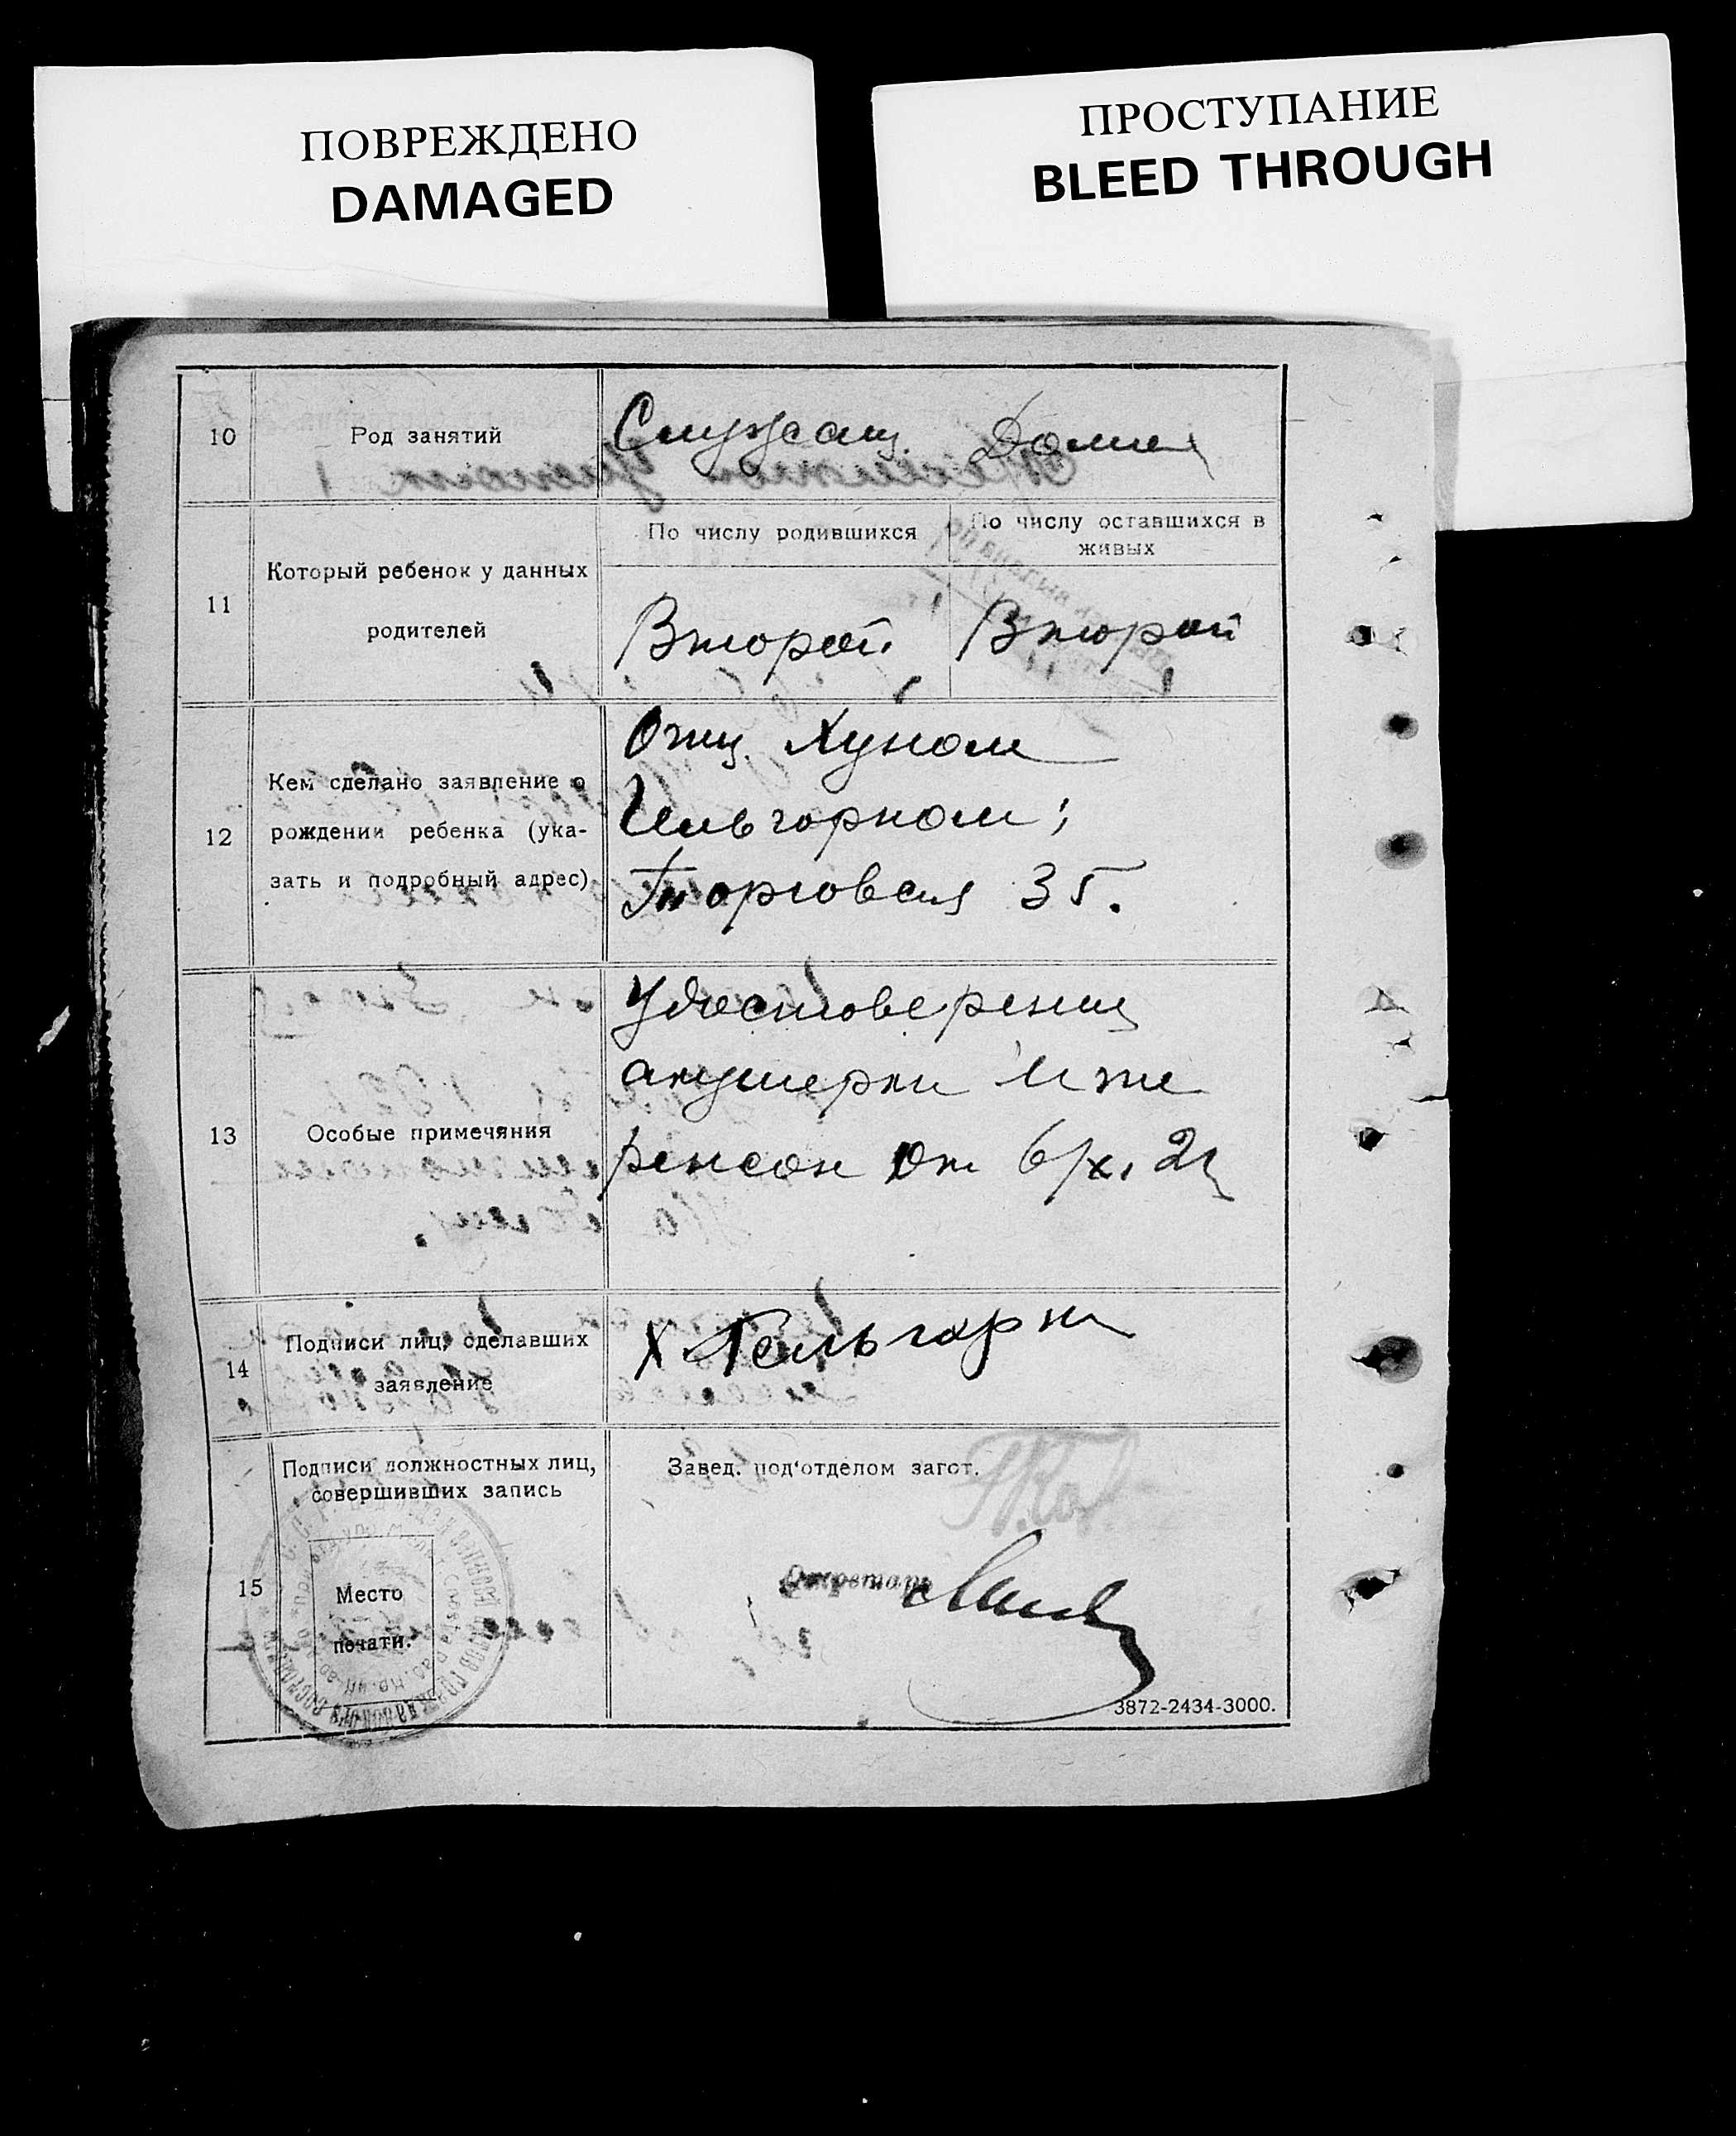 ПОВРЕЖДЕНО
DAMAGED
ПРОСТУПАНИЕ
BLEED THROUGH
10 Род занятий Служащ. Домен
11 Который ребенок у данных родителей
По числу родившихся По числу оставшихся в живых
Второй. Второй
12 Кем сделано заявление о
рождении ребенка (ука-
зать и подробный адрес)
Отц. Хуном
Гельгорном;
Торговая 35.
13 Особые примечания
Удостоверение
акушерки
от 6/X. 21
14 Подписи лиц, сделавших
заявление
Х Гельгорн
15 Подписи должностных лиц,
совершивших запись
Место
печати.
Завед. под'отделом загст.
Секретарь
3872-2434-3000.